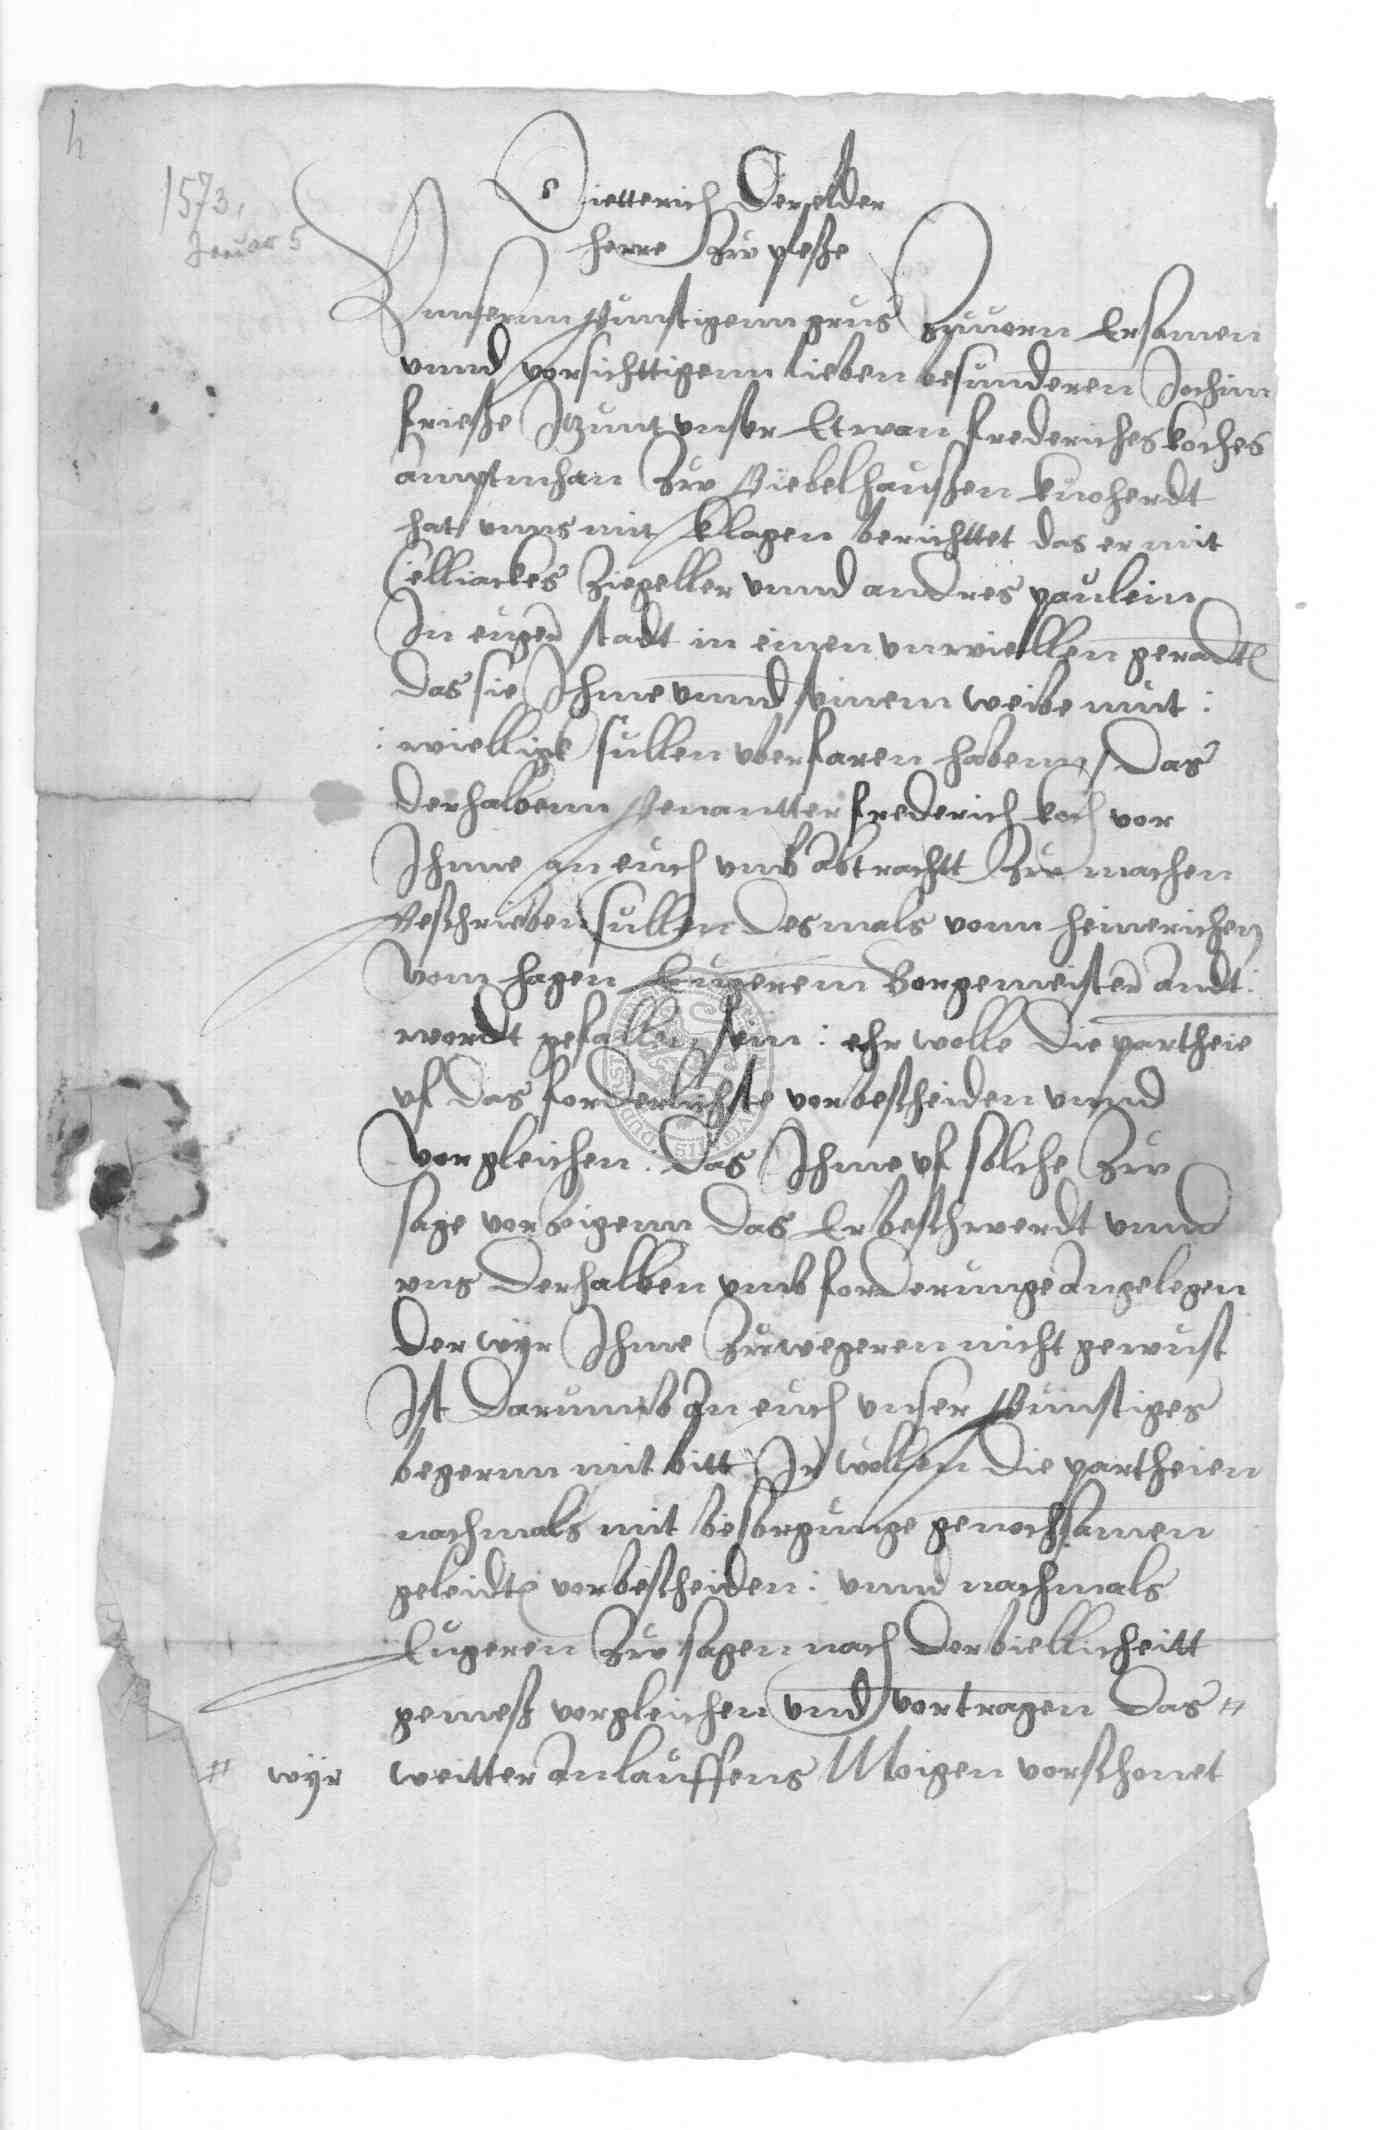 h
1573,
Januar 5
Dietterich Der elder
Herre Zuv plesse
Vnnsernn Gunstigenn grus Zuuorn Ersamen
vnnd vorsichttigenn lieben besunderen Jochim
friesse Itzunt vnser Etwan frederiches koches
amptmhan Zuv Giebelhaussen kuoherdt
hat vnns mit klagen berichttet das er mit
Cilliackes Ziegeller vnnd andres paulein
In euger stadt in einen vnwiellen geradt
das sie Ihme vnnd seinem weibe mut :
: wiellick sullen vberfaren habenn, Das
derhalbenn Genantter frederich koch vor
Ihme an euch vmb abtrachtt Zuv machen
Geschrieben sullen desmals vonn heinerichen
vom hagen Eugerem Borgemeister Andt :
wordt gefallen sein : ehr wolle die partheie
vf das forderlichste vorbescheiden vnnd
vorgleichen : das Ihme vf solche Zuv
sage vorzigenn das Er beschwerdt vnnd
vns derhalben vmb forderunge Angelegen
der wyr Ihme Zuwegeren nicht gewust
Ist darumb An euch vnser Gunstiges
begernn mit bitt Ir wollen die partheien
nochmals mit besorgunge genochsamen
geleidts vorbescheiden : vnnd nochmals
Eugeren Zuv sagen nach der biellicheitt
gemess vorgleichen vnd vortragen das #
# wyr weitter Anlauffens Moigen vorschonet